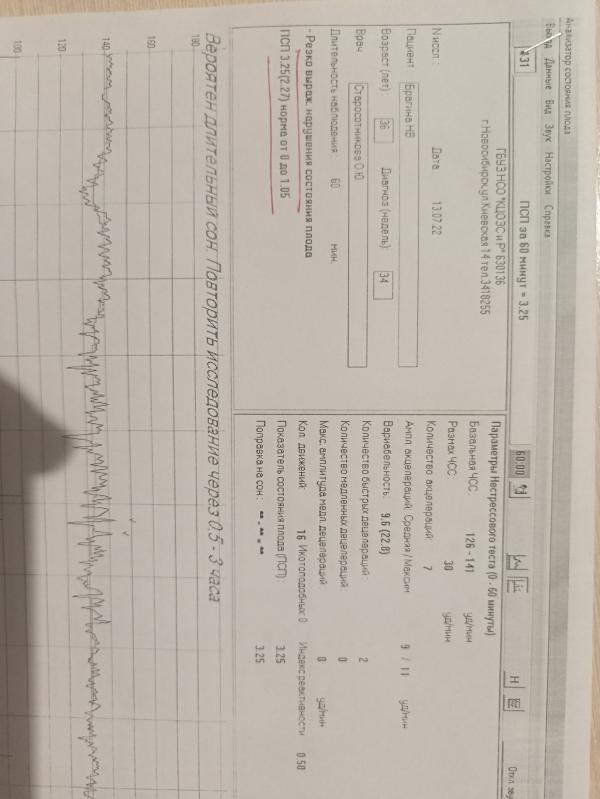 Анализатор состояния плода
Выход Данные Вид Звук Настройки Справка
131 ПСП за 60 минут = 3.25 60:00 Н Откл. зву
ГБУЗ НСО "КЦОЗС и Р" 630136
г.Новосибирск,ул.Киевская 14 тел.3418255
N иссл.: Дата 13.07.22
Пациент Брагина НВ
Возраст (лет) 36 Диагноз (недель): 34
Врач Старосотникова О.Ю
Длительность наблюдения: 60 мин.
- Резко выраж. нарушения состояния плода
ПСП 3.25(2.27) норма от 0 до 1.05
Параметры Нестрессового теста (0 - 60 минуты)
Базальная ЧСС: 126 - 141 уд/мин
Размах ЧСС 30 уд/мин
Количество акцелераций: 7
Ампл. акцелераций: Средняя / Максим 9 / 11 уд/мин
Вариабельность: 9.6 (22.8)
Количество быстрых децелераций: 2
Количество медленных децелераций 0
Макс. амплитуда медл. децелераций 0 уд/мин
Кол. движений: 16 Икотоподобных: 0 Индекс реактивности 0.50
Показатель состояния плода (ПСП): 3.25
Поправка на сон: ** - ** = ** 3.25
Вероятен длительный сон. Повторить исследование через 0.5 - 3 часа
180
160
140
120
100